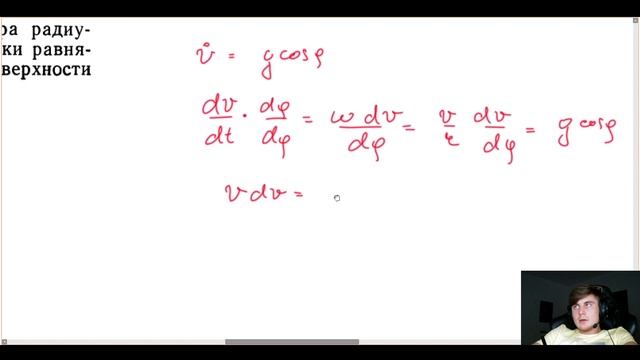 ра радиу-
ки равня-
верхности
v̇ = g cosφ
dv/dt · dφ/dφ = ω dv/dφ = v/r dv/dφ = g cosφ
v dv =